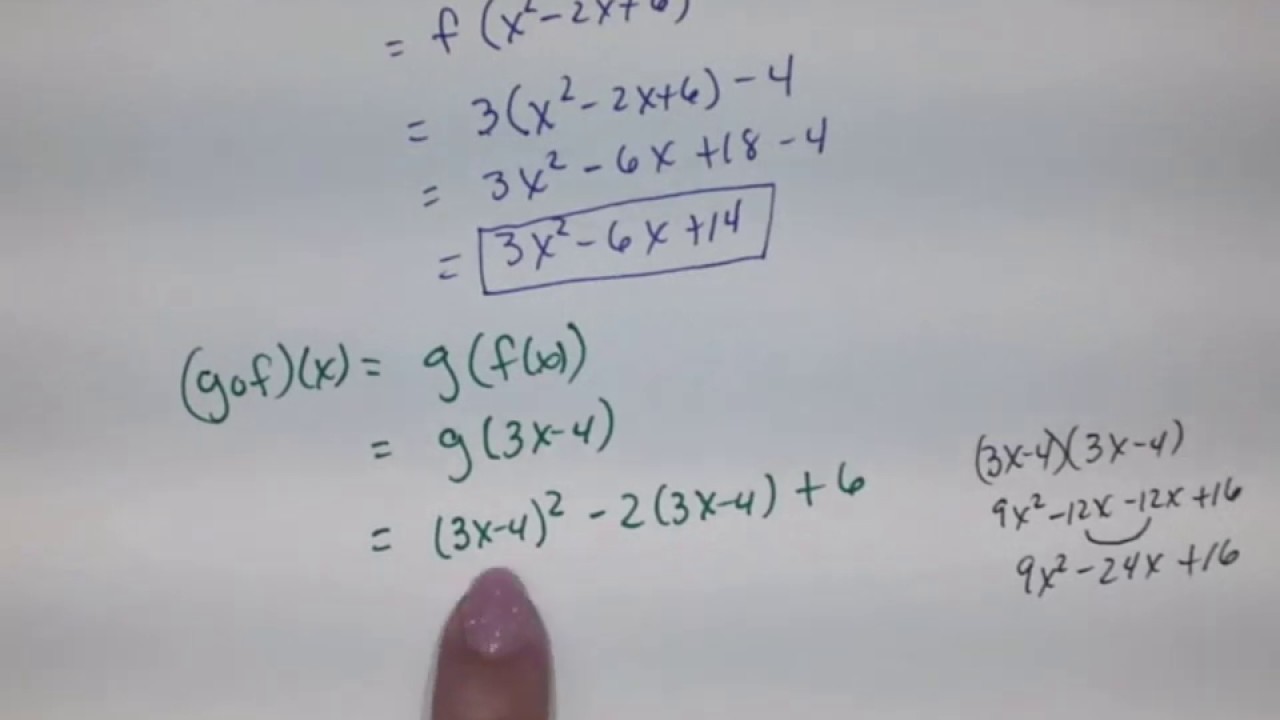 = f (x²-2x+6)
= 3(x²-2x+6)-4
= 3x²-6x+18-4
= 3x²-6x+14
(gof)(x) = g(f(x))
= g(3x-4)
= (3x-4)² - 2(3x-4) + 6
(3x-4)(3x-4)
9x²-12x-12x+16
9x²-24x+16